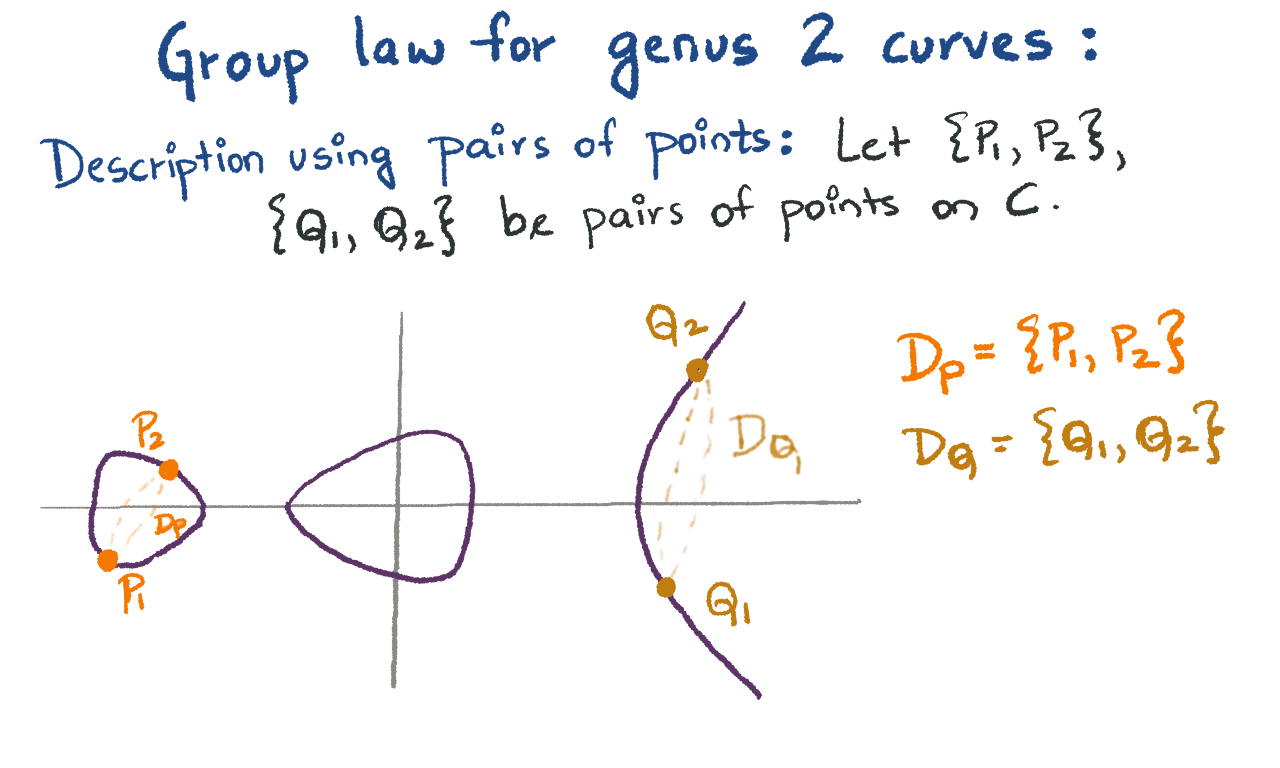 Group law for genus 2 curves:
Description using pairs of points: Let {P₁, P₂},
{Q₁, Q₂} be pairs of points on C.
Q₂
D_P = {P₁, P₂}
P₂
D_Q
D_Q = {Q₁, Q₂}
D_P
P₁
Q₁